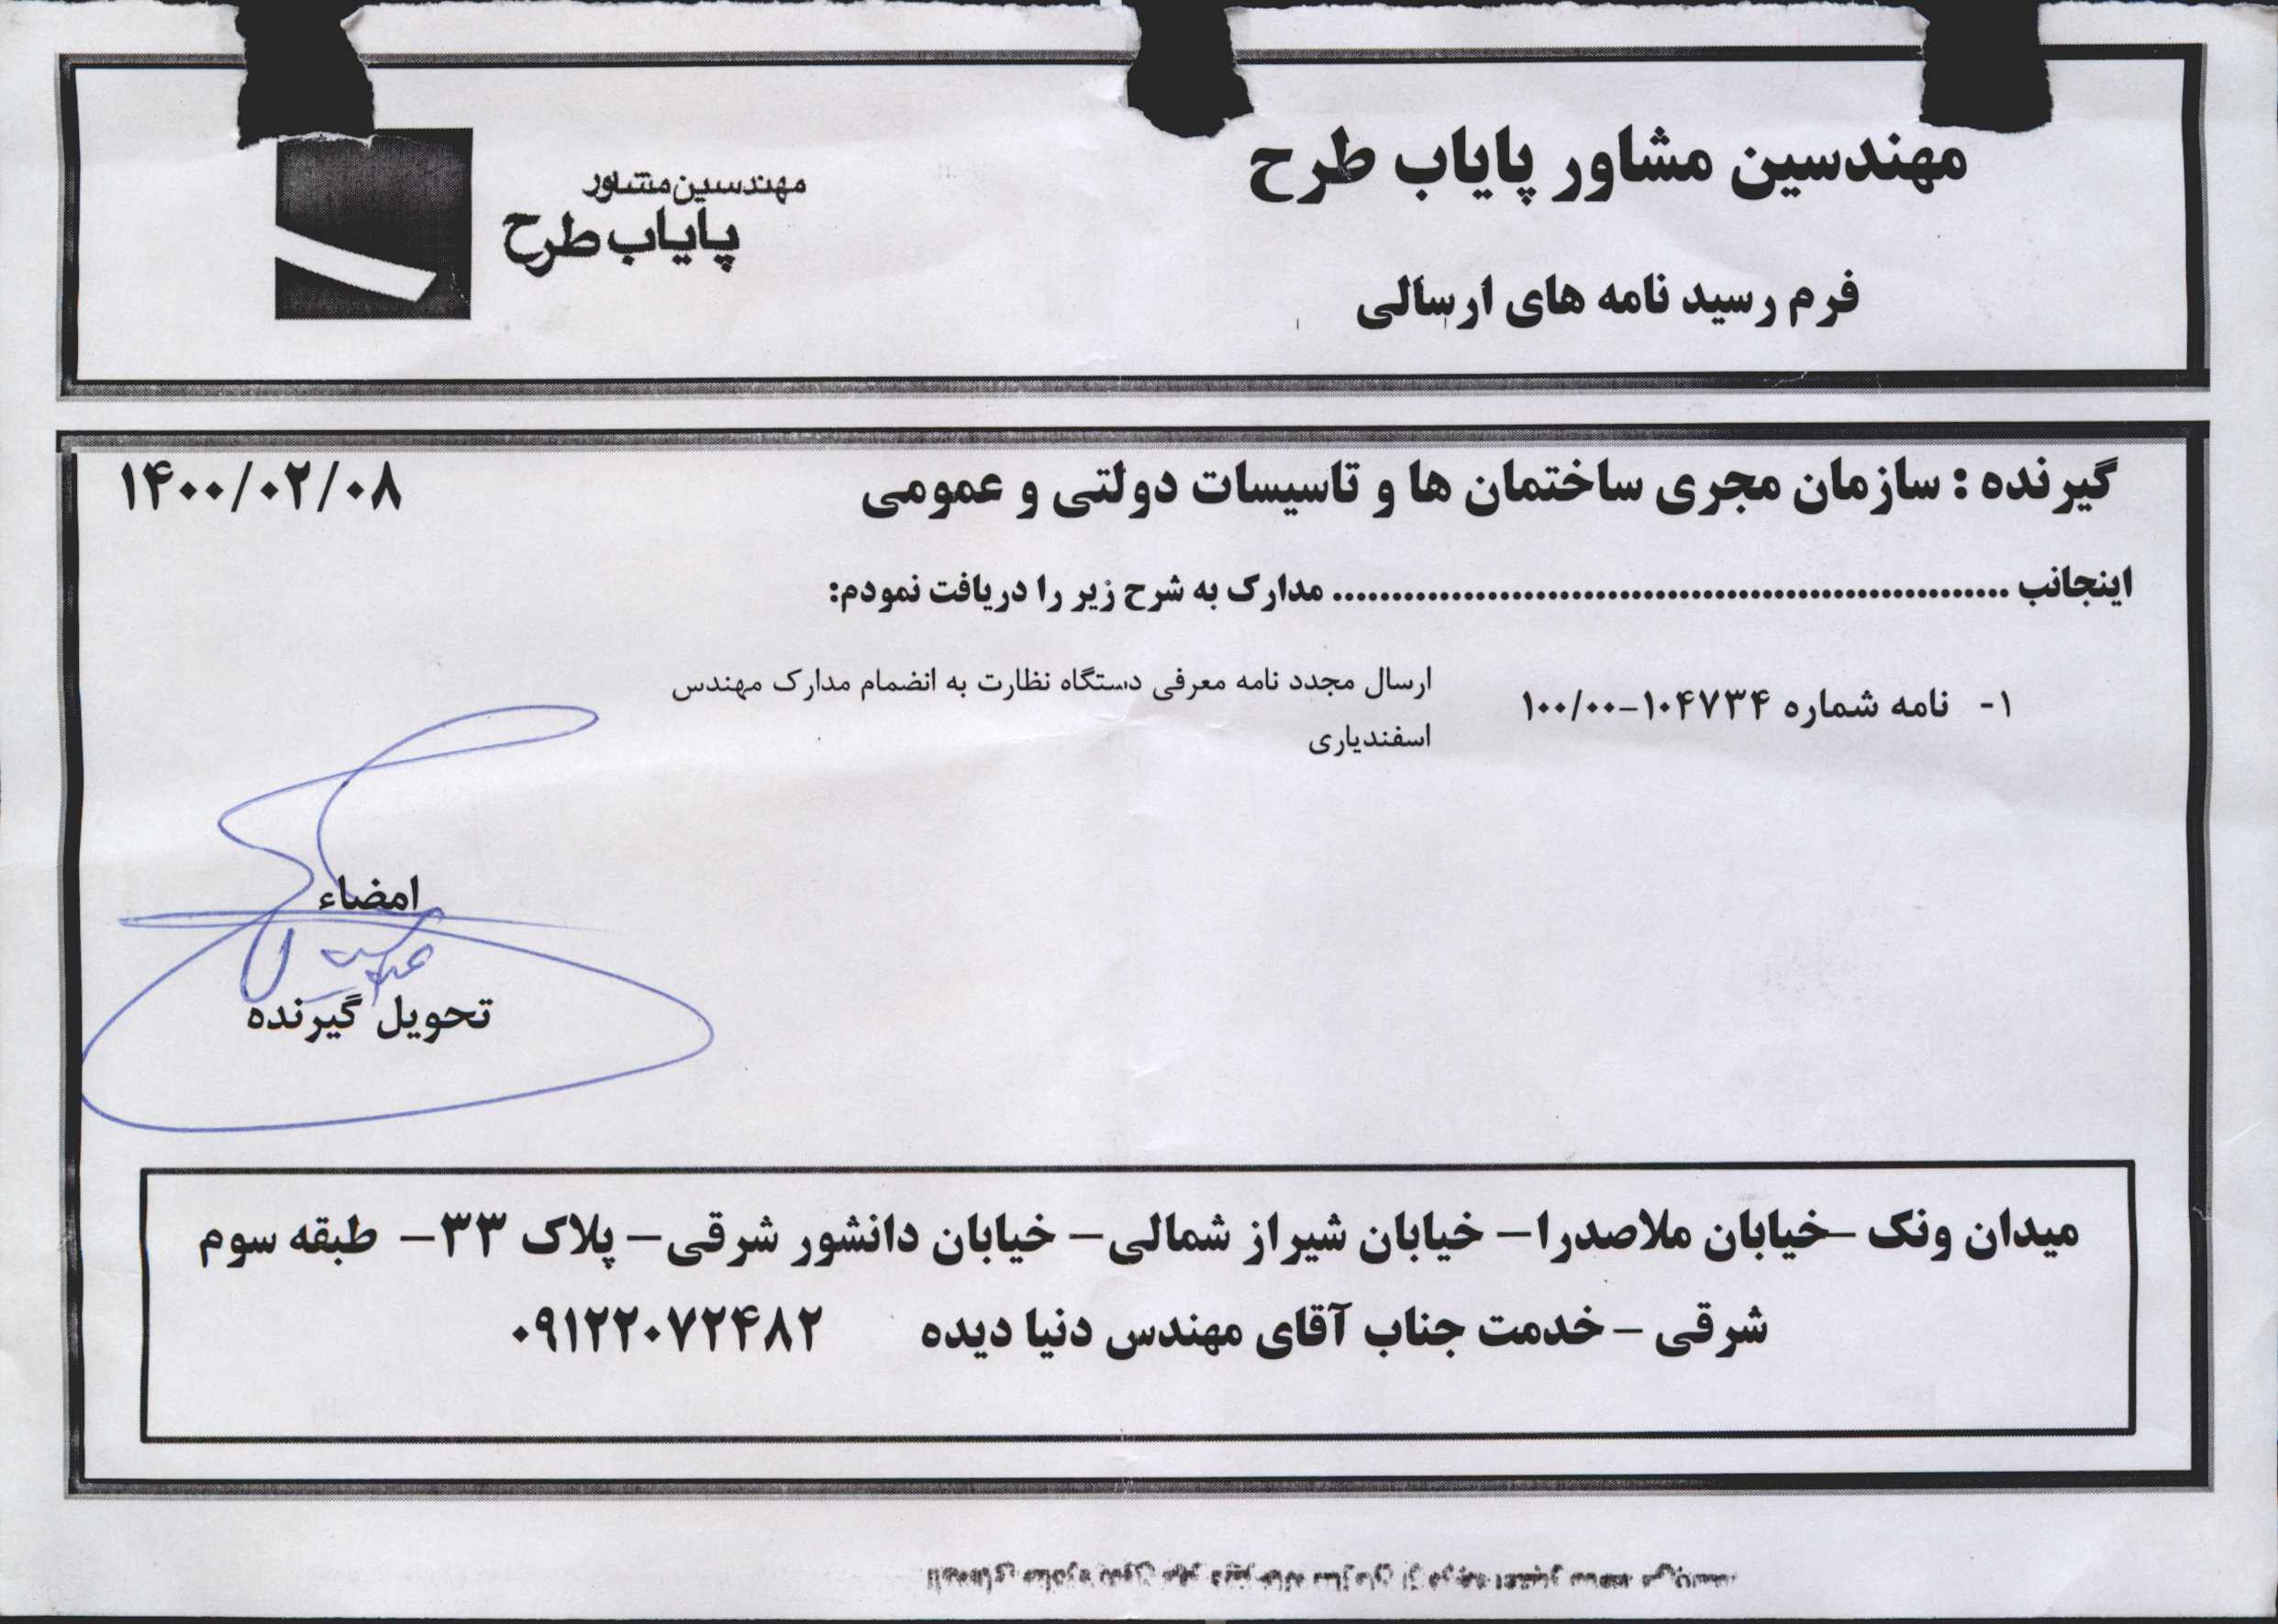 مهندسین مشاور پایاب طرح
مهندسین مشاور
پایاب طرح
فرم رسید نامه های ارسالی
گیرنده : سازمان مجری ساختمان ها و تاسیسات دولتی و عمومی ۱۴۰۰/۰۲/۰۸
اینجانب ............................................................ مدارک به شرح زیر را دریافت نمودم:
۱- نامه شماره ۱۰۴۷۳۴-۱۰۰/۰۰ ارسال مجدد نامه معرفی دستگاه نظارت به انضمام مدارک مهندس
اسفندیاری
امضاء
تحویل گیرنده
میدان ونک –خیابان ملاصدرا– خیابان شیراز شمالی– خیابان دانشور شرقی– پلاک ۳۳– طبقه سوم
شرقی – خدمت جناب آقای مهندس دنیا دیده ۰۹۱۲۲۰۷۲۴۸۲